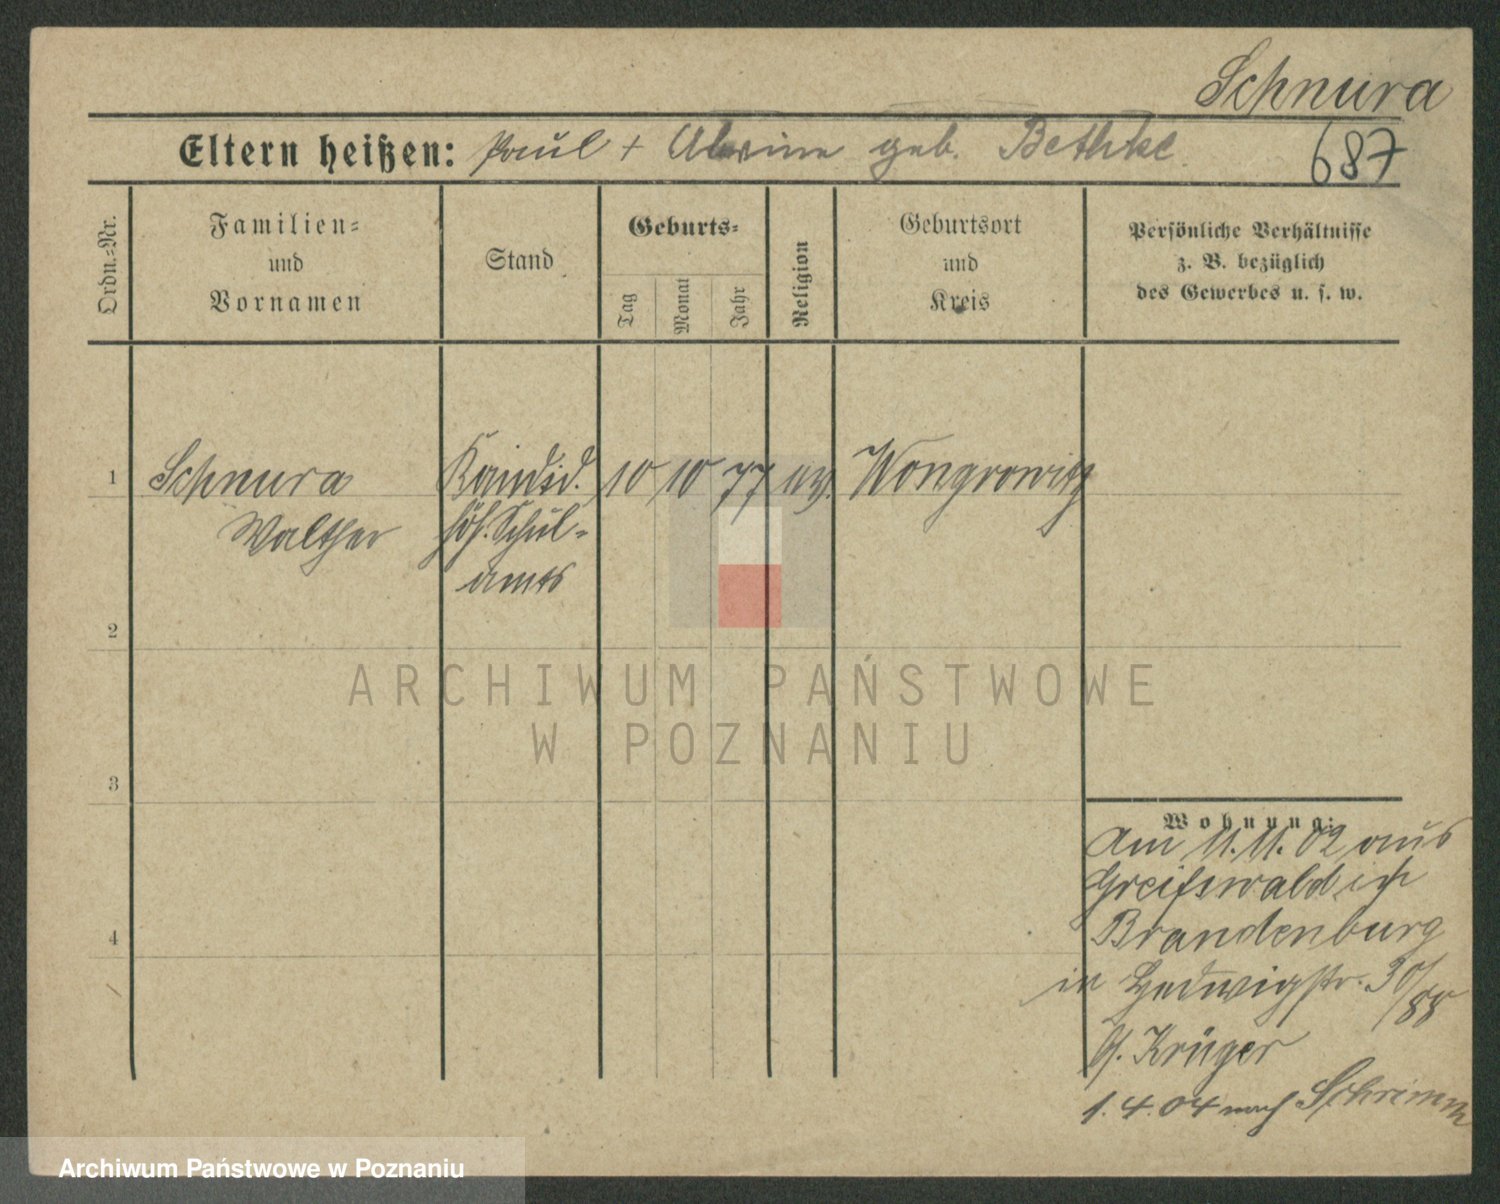 Schnura
Eltern heißen: Paul + Alwine geb. Bethke
687
Ordn.=Nr.
Familien=
und
Vornamen
Stand
Geburts=
Tag
Monat
Jahr
Religion
Geburtsort
und
Kreis
Persönliche Verhältnisse
z. B. bezüglich
des Gewerbes u. s. w.
1 Schnura Kandid. 10 10 77 ev. Wongrowitz
Walther höh. Schul-
amts
2
3
4
ARCHIWUM PAŃSTWOWE
W POZNANIU
Wohnung:
Am 11.11.02 aus
Greifswald
Brandenburg
in Hedwigstr. 30/
88
b/. Krüger
1.4.04 nach Schrimm
Archiwum Państwowe w Poznaniu